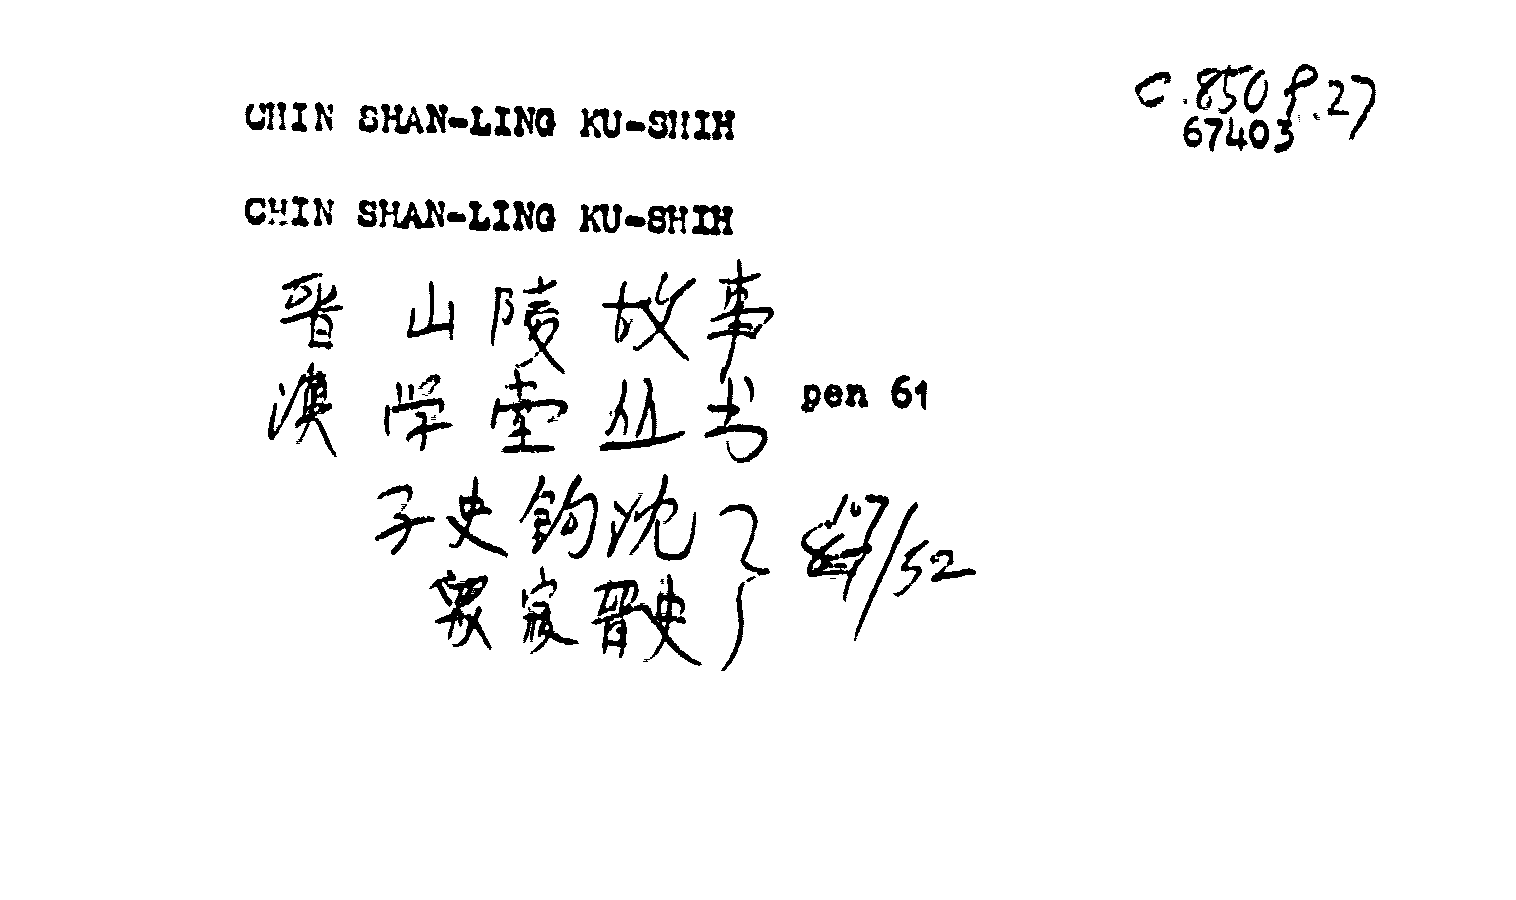 C.850 p.27
67403
CHIN SHAN-LING KU-SHIH
CHIN SHAN-LING KU-SHIH
晋山陵故事
漢学堂丛书 pen 61
子史鉤沈
衆家晋史
/52